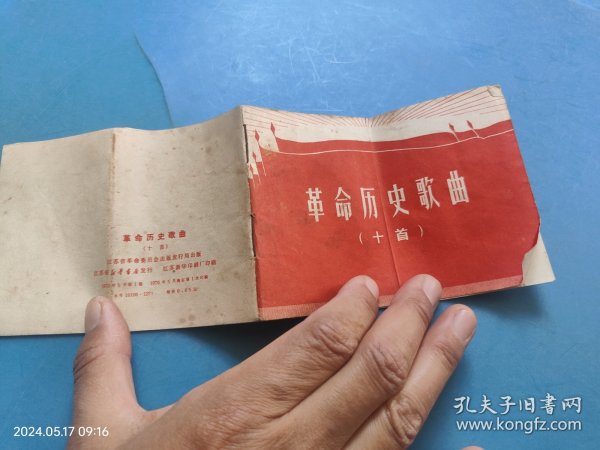 革命历史歌曲
(十首)
革命历史歌曲
(十首)
江苏省革命委员会出版发行局出版
江苏省新华书店发行 江苏新华印刷厂印刷
2024.05.17 09:16
孔夫子旧书网
www.kongfz.com